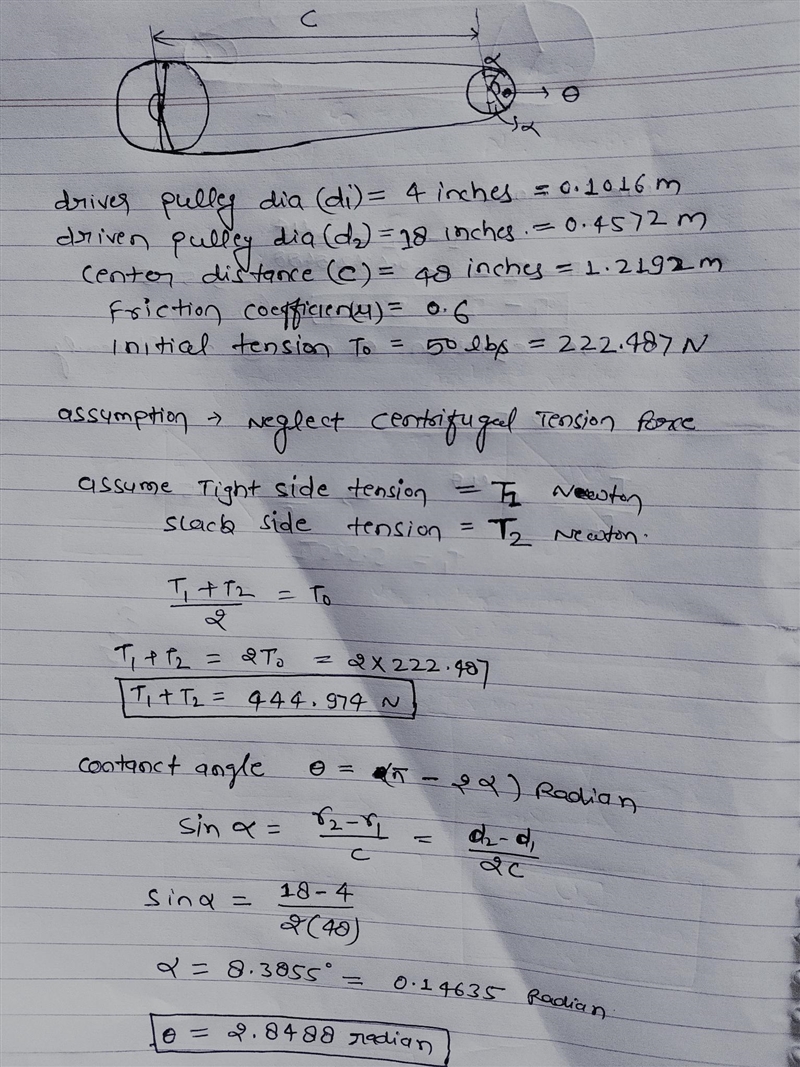 C
α
θ
α
driver pulley dia (d1) = 4 inches = 0.1016 m
driven pulley dia (d2) = 18 inches. = 0.4572 m
center distance (c) = 48 inches = 1.2192 m
Friction coefficien(μ) = 0.6
Initial tension To = 50 lbs = 222.487 N
assumption → Neglect Centrifugal Tension force
assume Tight side tension = T1 Newton
slack side tension = T2 Newton.
(T1 + T2)/2 = To
T1 + T2 = 2To = 2 x 222.487
T1 + T2 = 444.974 N
contanct angle θ = (π - 2α) Radian
sin α = (r2 - r1)/c = (d2 - d1)/2c
sinα = (18 - 4)/2(48)
α = 8.3855° = 0.14635 Radian.
θ = 2.8488 radian